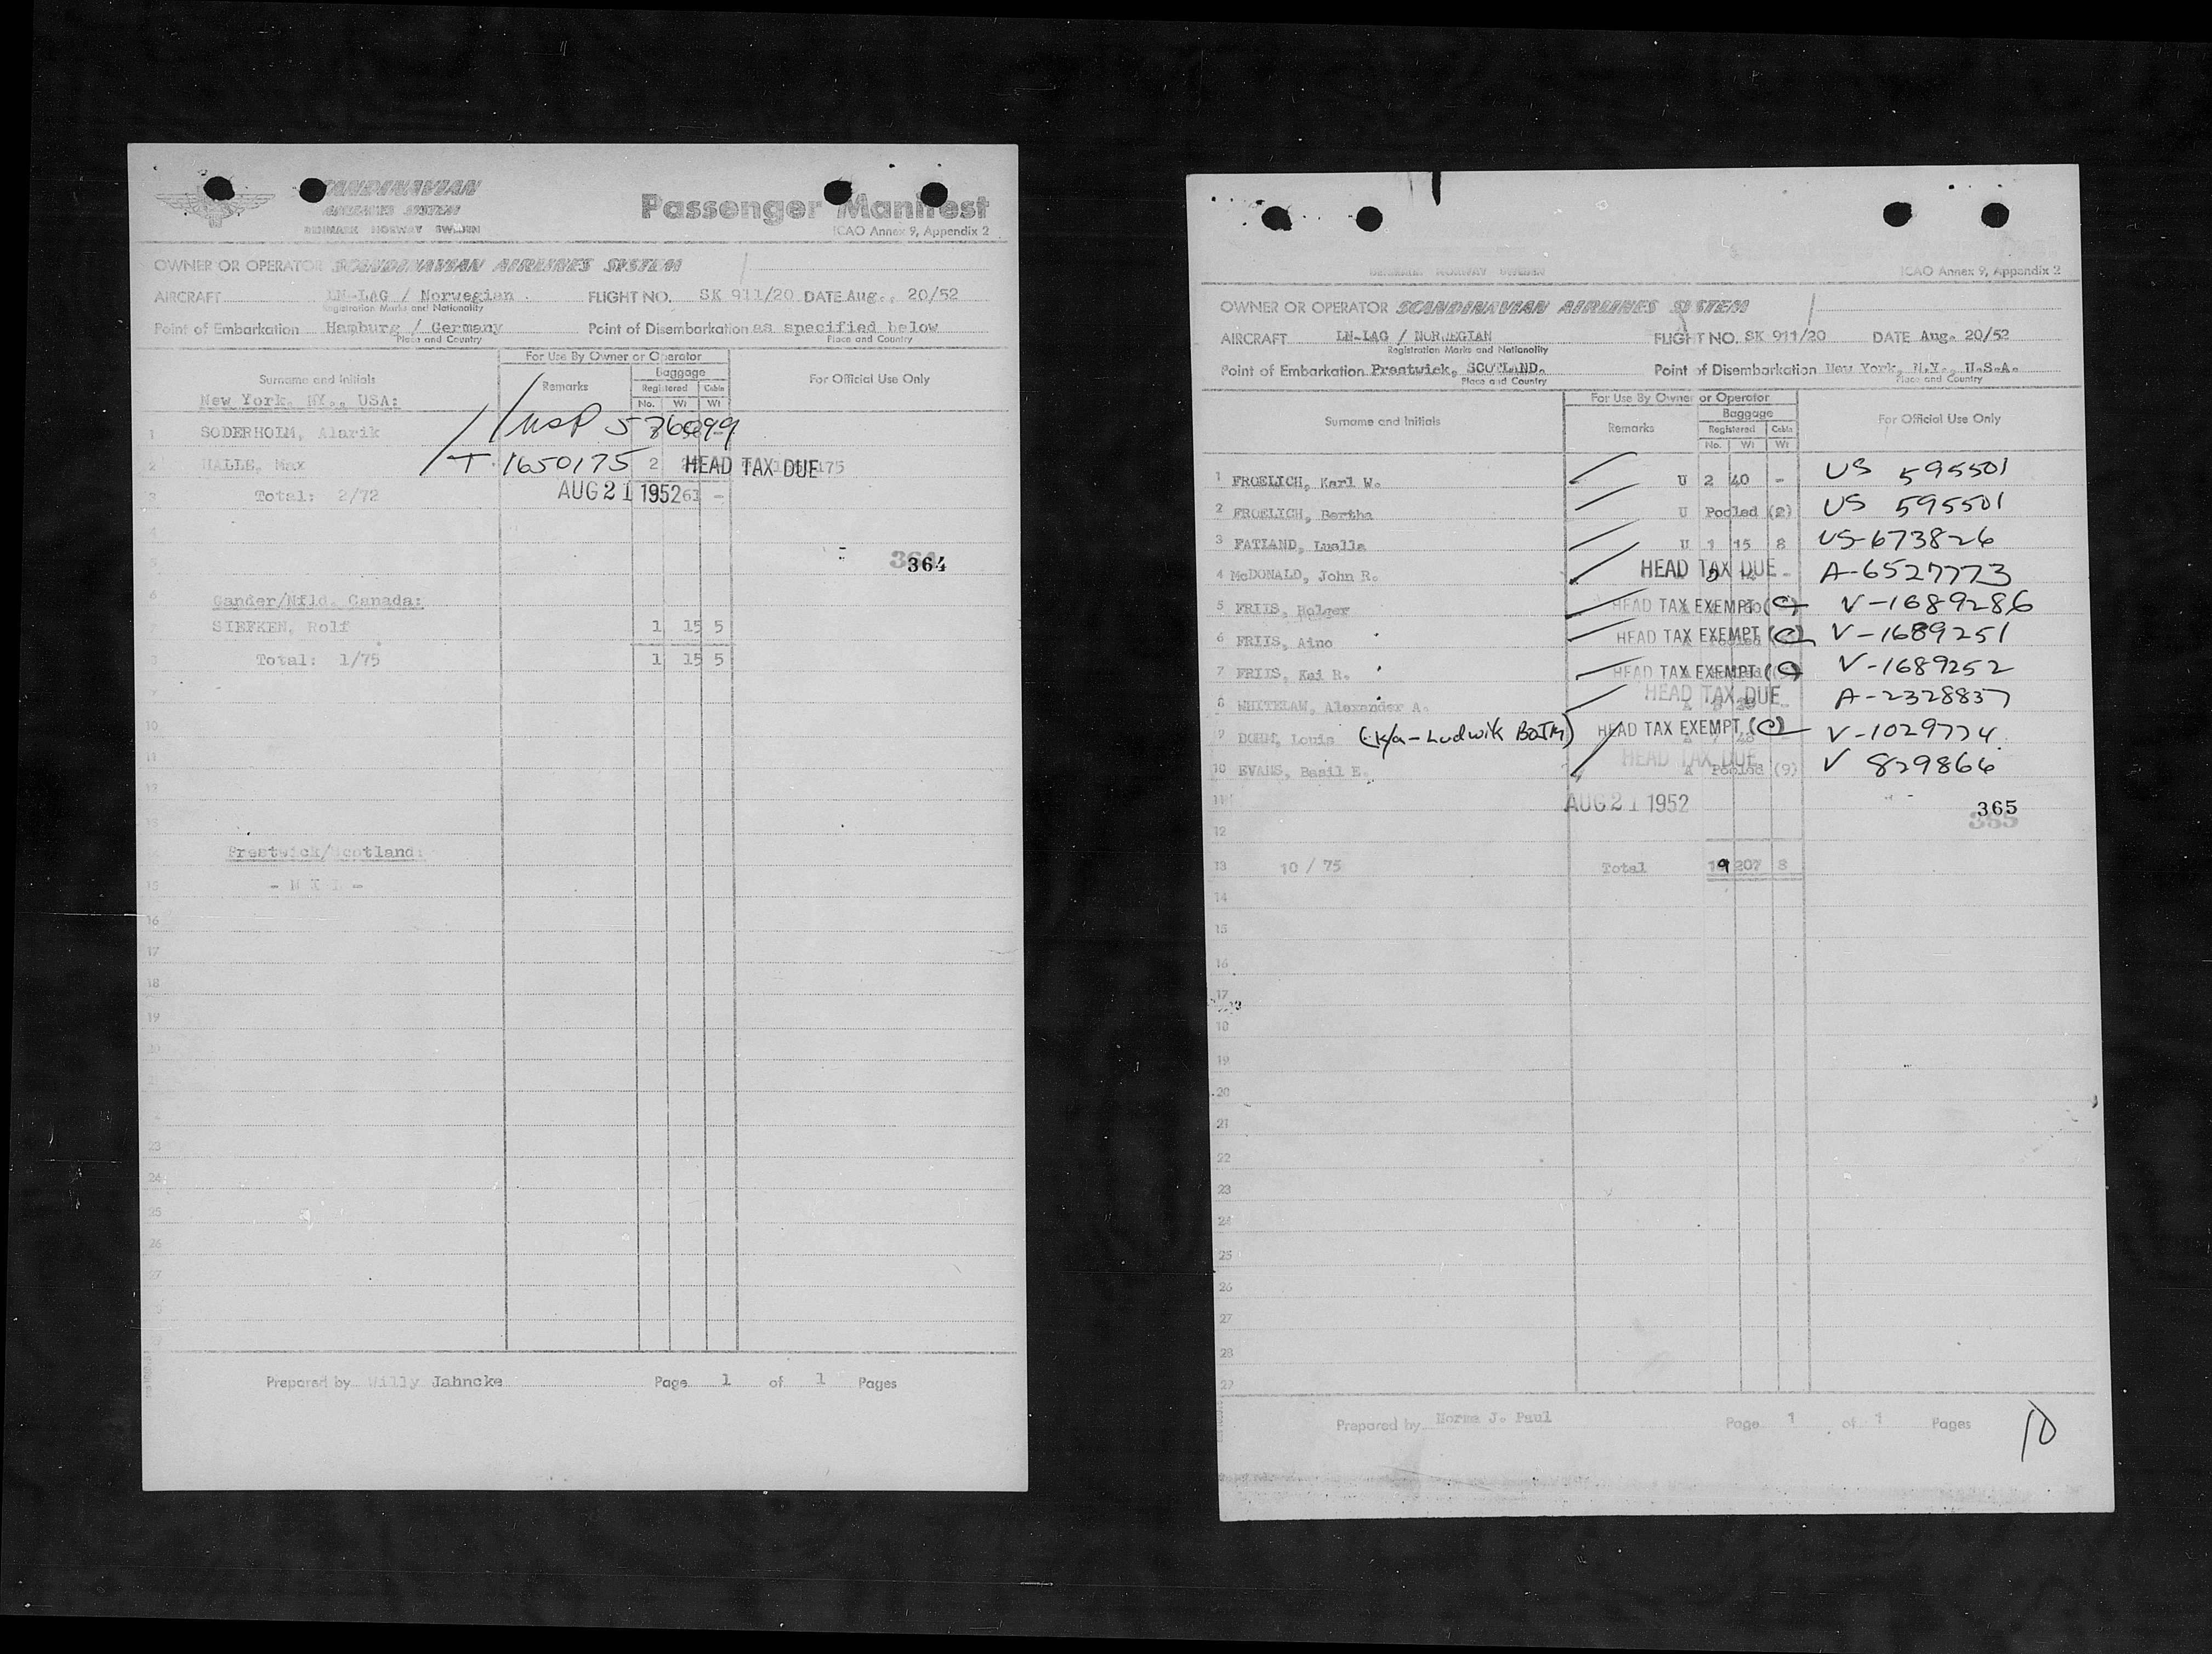 SCANDINAVIAN
AIRLINES SYSTEM
DENMARK NORWAY SWEDEN
Passenger Manifest
ICAO Annex 9, Appendix 2
OWNER OR OPERATOR SCANDINAVIAN AIRLINES SYSTEM
AIRCRAFT LN-LAG / Norwegian FLIGHT NO. SK 911/20 DATE Aug., 20/52
Registration Marks and Nationality
Point of Embarkation Hamburg / Germany Point of Disembarkation as specified below
Place and Country Place and Country
For Use By Owner or Operator
Surname and Initials Remarks Baggage For Official Use Only
Registered Cabin
No. Wt Wt
New York, NY., USA:
1 SODERHOLM, Alarik USP 576099
2 HALLE, Max T-1650175 2 HEAD TAX DUE 175
3 Total: 2/72 AUG 21 1952 61 -
4
5 364
364
6 Gander/Nfld. Canada:
SIEFKEN, Rolf 1 15 5
8 Total: 1/75 1 15 5
10
11
12
13
Prestwick/Scotland:
15 - N I L -
16
17
18
19
20
23
24
25
26
27
Prepared by Willy Jahncke Page 1 of 1 Pages
DENMARK NORWAY SWEDEN
ICAO Annex 9, Appendix 2
OWNER OR OPERATOR SCANDINAVIAN AIRLINES SYSTEM
AIRCRAFT LN-LAG / NORWEGIAN FLIGHT NO. SK 911/20 DATE Aug. 20/52
Registration Marks and Nationality
Point of Embarkation Prestwick, SCOTLAND. Point of Disembarkation New York, N.Y., U.S.A.
Place and Country Place and Country
For Use By Owner or Operator
Surname and Initials Remarks Baggage For Official Use Only
Registered Cabin
No. Wt Wt
1 FROELICH, Karl W. U 2 40 - US 595501
2 FROELICH, Bertha U Pooled (2) US 595501
3 FATLAND, Luella U 1 15 8 US-673826
4 McDONALD, John R. HEAD TAX DUE - A-6527773
5 FRIIS, Holger HEAD TAX EXEMPT (C) V-1689286
6 FRIIS, Aino HEAD TAX EXEMPT (C) V-1689251
7 FRIIS, Kai R. HEAD TAX EXEMPT (C) V-1689252
8 WHITELAW, Alexander A. HEAD TAX DUE A-2328837
9 BOHM, Louis (k/a-Ludwik BOJM) HEAD TAX EXEMPT (C) V-1029774
10 EVANS, Basil E. HEAD TAX DUE A Pooled (9) V 829866
11 AUG 21 1952 365
365
12
13 10 / 75 Total 19 207 8
14
15
16
17
18
19
20
21
22
23
24
25
26
27
28
29
Prepared by Norma J. Paul Page 1 of 1 Pages
10